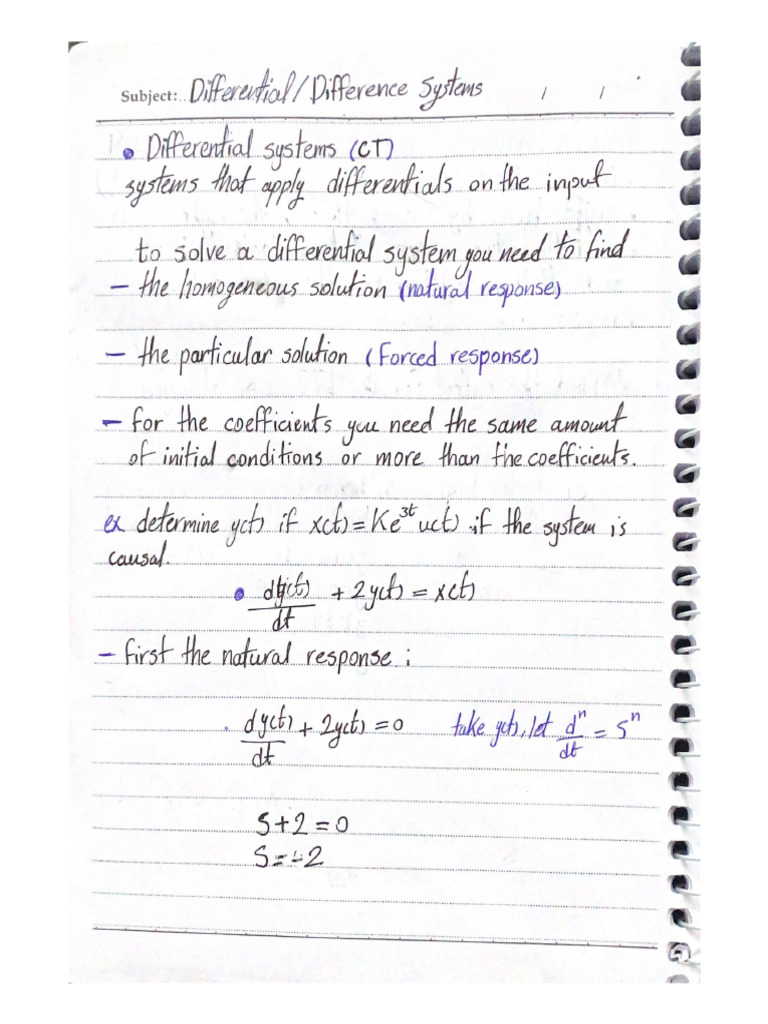 Subject: Differential/Difference Systems / /
• Differential systems (CT)
systems that apply differentials on the input
to solve a differential system you need to find
– the homogeneous solution (natural response)
– the particular solution (Forced response)
– for the coefficients you need the same amount
of initial conditions or more than the coefficients.
ex determine y(t) if x(t) = Ke^3t u(t) if the system is
causal.
• dy(t)/dt + 2y(t) = x(t)
– first the natural response :
dy(t)/dt + 2y(t) = 0 take y(t), let d^n/dt = S^n
S + 2 = 0
S = -2